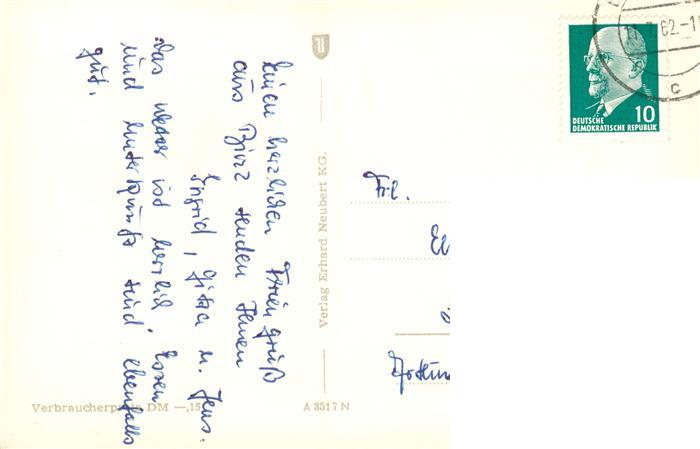 Einen herzlichen Feriengruß
aus Binz senden Ihnen
Ingrid, Gitta u. Jens.
Das Wetter ist herrlich, Essen
und Unterkunft sind ebenfalls
gut.
Verlag Erhard Neubert KG.
Frl.
El
Verbraucherpreis DM —,15
A 3517 N
62.-1
C
10
DEUTSCHE
DEMOKRATISCHE REPUBLIK